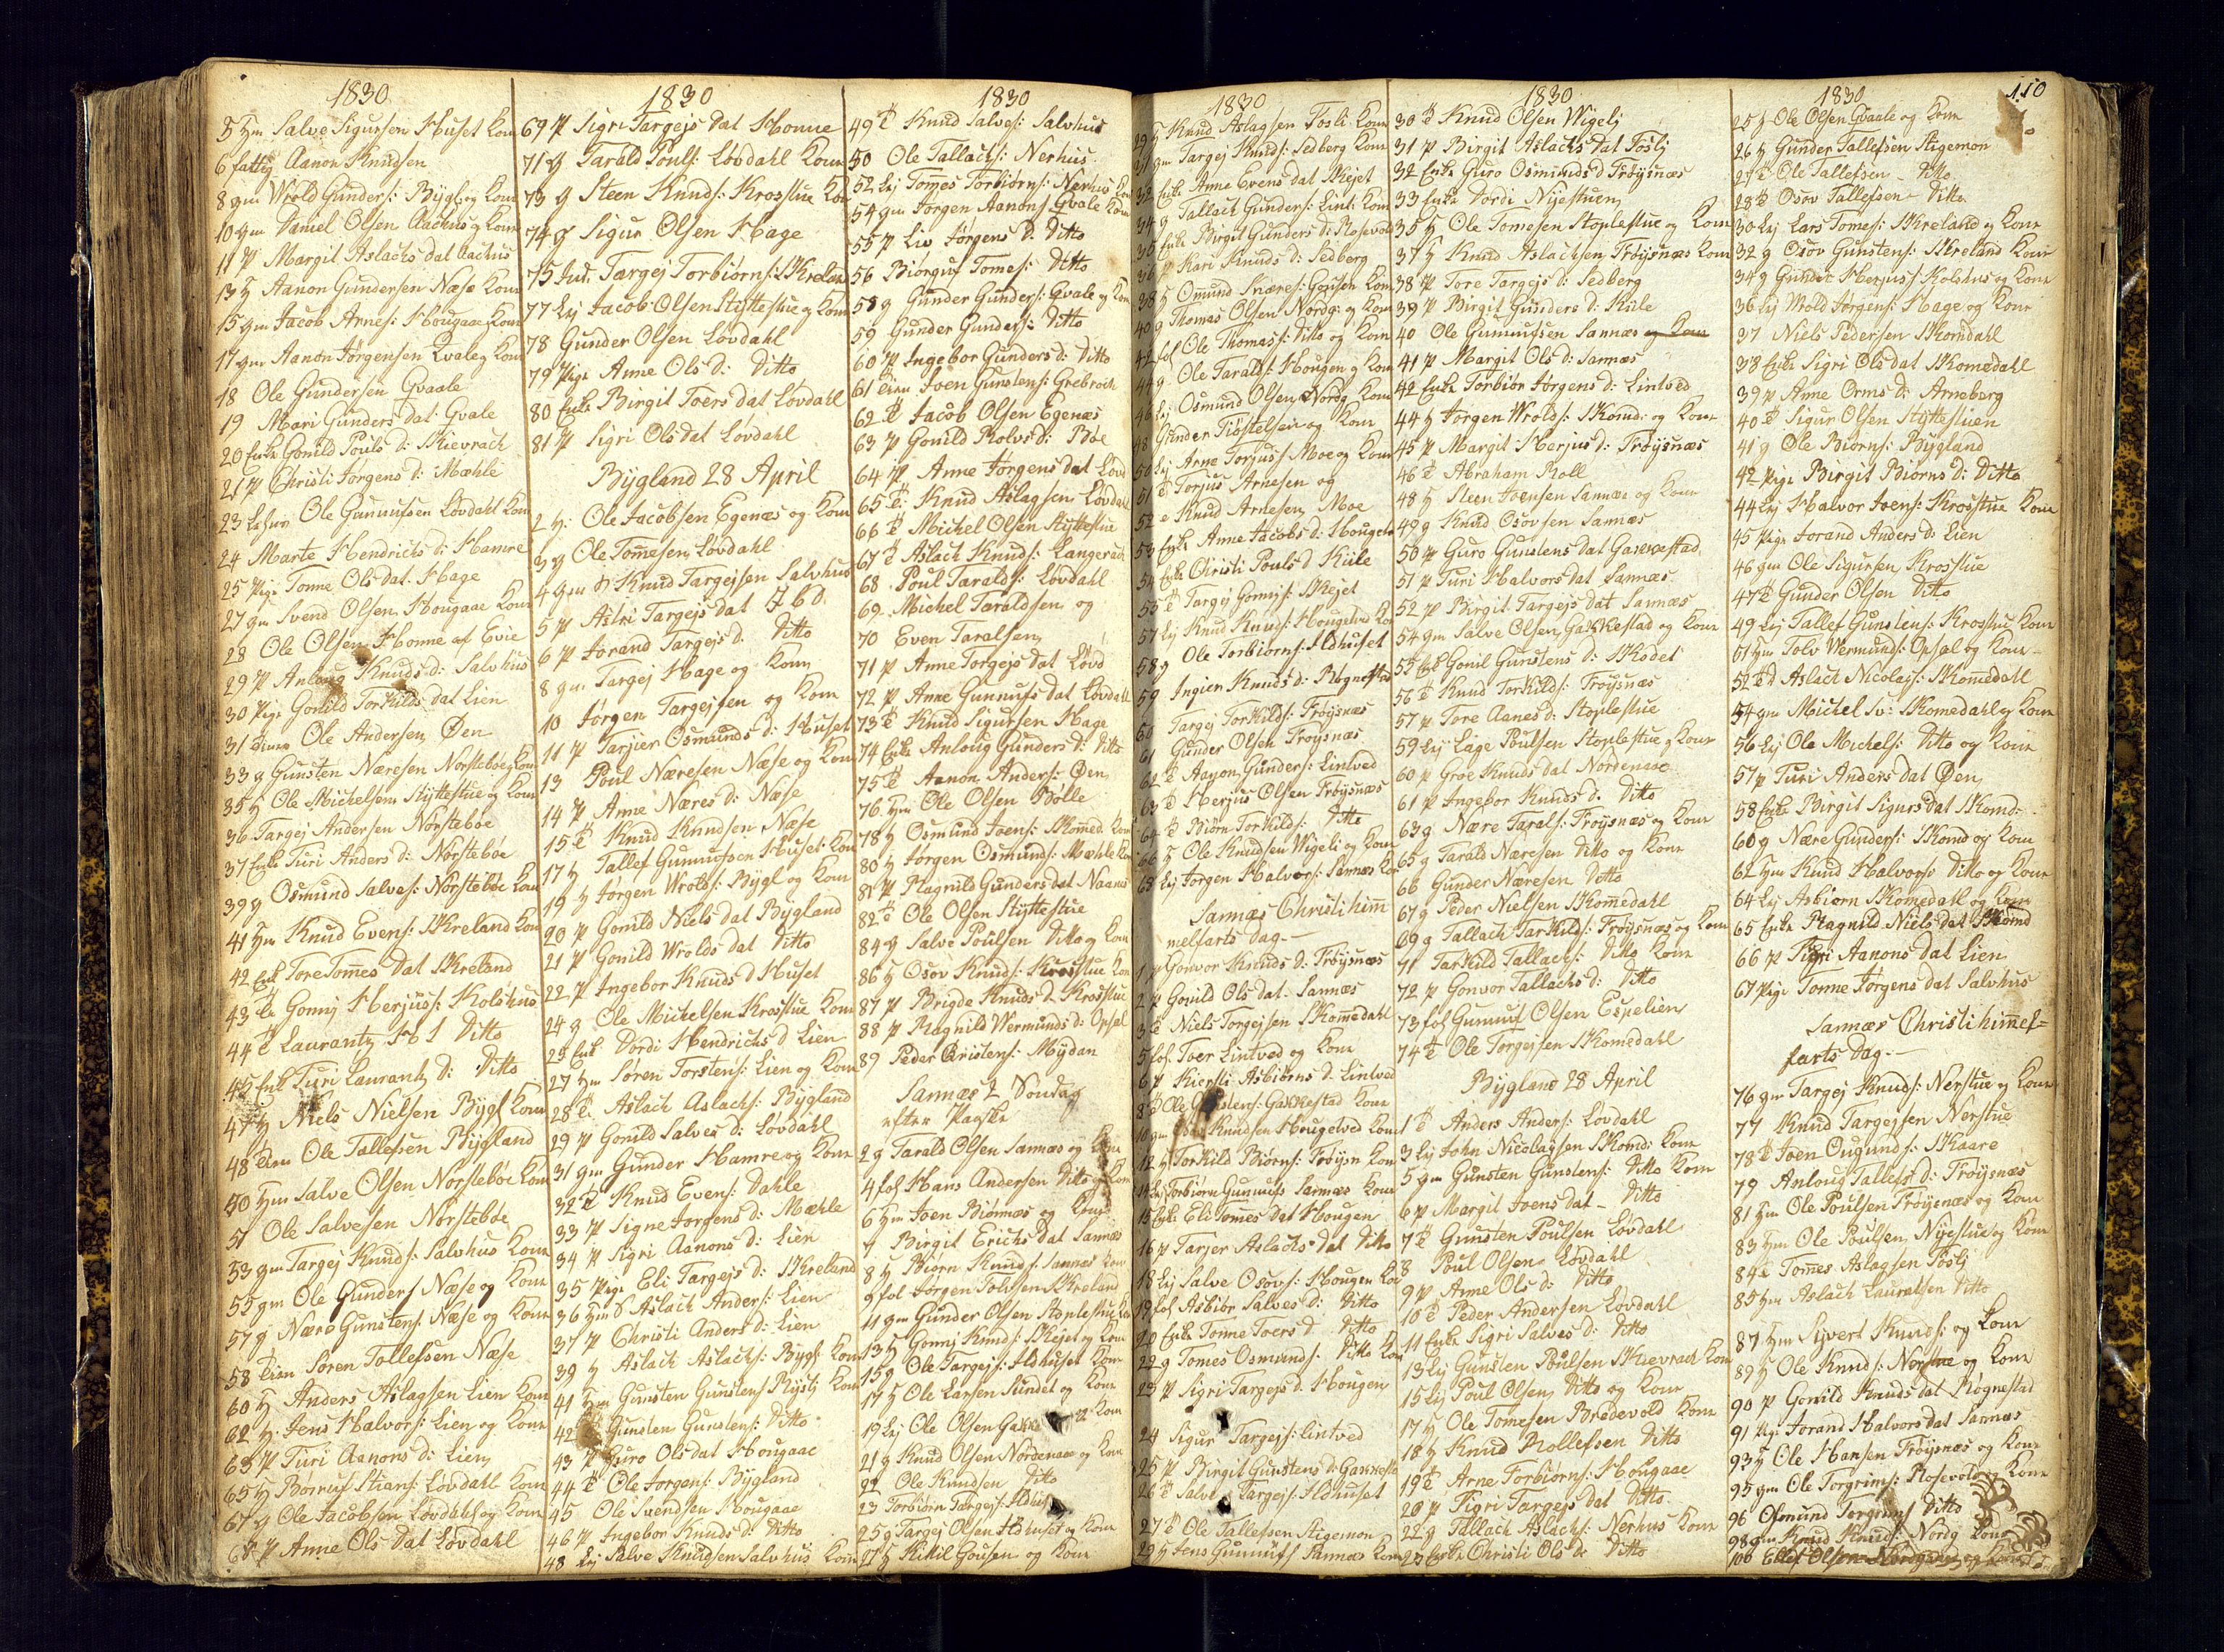 1830
5 Hm Salve Sigursen Huset Kom
6 fattig Aanon Knudsen
8 gm Wrold Gunders: Bygl. og Kom
10 gm Daniel Olsen Aackhus og Kom
11 P Margit Aslachs dat Aachus
13 H Aanon Gundersen Næse Kom
15 gm Jacob Arnes: Hougaae Kom
17 gm Aanon Jørgensen Qvale og Kom
18 Ole Gundersen Qvaale
19 Mari Gunders dat Qvale
20 Enke Gonild Pouls d: Skievrach
21 P Christi Jørgens d: Mæhle
23 Ole Gunnufsen Løvdahl Kom
24 Marte Hendrichs d: Hamre
25 Pige Tonne Ols dat Hage
27 gm Svend Olsen Hougaae Kom
28 Ole Olsen Honne af Evie
29 P Anloug Knuds d: Salvhus
30 Pige Gonild Torkilds dat Lien
31 Ole Andersen Øen
33 g Gunsten Næresen Norstebøe og Kom
35 H Ole Michelsen Styttestue og Kom
36 Targej Andersen Norstebøe
37 Enke Turi Anders d: Norstebøe
39 g Osmund Salves: Norstebøe Kom
41 Hm Knud Evens: Skreland Kom
42 Enk Tore Tomes Dat Skreland
43 Gonnj Herjus: Kolshus
44 Laurantz Ditto
45 Enk Turi Laurantz d: Ditto
47 H Niels Nielsen Bygl Kom
48 Ole Tallefsen Bygland
50 Hm Salve Olsen Norstebøe Kom
51 Ole Salvesen Norstebøe
53 gm Targej Knuds: Salvhus Kom
55 gm Ole Gunders Næse og Kom
57 g Nære Gunstens: Næse og Kom
58 Søren Tollefsen Næse
60 H Anders Aslagsen Lien Kom
62 H. Jens Halvors: Lien og Kom
63 P Turi Aanons d: Lien
65 H Børruf Stians: Løvdahl Kom
67 g Ole Jacobsen Løvdahl og Kom
68 P Anne Ols Dat Løvdahl
1830
69 P Sigri Targejs Dat Honne
71 g Tarald Pouls: Løvdahl Kom
73 g Steen Knuds: Krosstue Kom
74 g Sigur Olsen Hage
75 Ind. Targej Torbiørns: Skreland
77 Lej Jacob Olsen Styttestue og Kom
78 Gunder Olsen Løvdahl
79 Pige Anne Ols D: Ditto
80 Enke Birgit Toers dat Løvdahl
81 P Sigri Ols dat Løvdahl
Bygland 28 April
2 H: Ole Jacobsen Egenæs og Kom
3 g Ole Tomesen Løvdahl
4 gm Knud Targejsen Salvhus
5 P Astri Targejs dat
6 P Jorand Targejs d. Ditto
8 gm. Targej Hage og Kom
10 Jørgen Targejsen og Kom
11 P Tarjier Osmunds d: Huset
13 Poul Næresen Næse og Kom
14 P Anne Næres d: Næse
15 Knud Knudsen Næse
17 H Tallef Gunnufsen Huset Kom
19 H Jørgen Wrolds: Bygl og Kom
20 P Gonild Niels dat Bygland
21 P Gonild Wrolds dat Ditto
22 P Ingebor Knuds d Huset
24 g Ole Michelsen Krosstue Kom
25 Enk Dordi Hendrichs d Lien
27 Hm Søren Torstens: Lien og Kom
28 Aslach Aslachs: Bygland
29 P Gonild Salves d: Løvdahl
31 gm Gunder Hamre og Kom
32 Knud Evens: Dahle
33 P Signe Jørgens d: Mæhle
34 P Sigri Aanons d: Lien
35 Pige Eli Targejs d: Skreland
36 Hm Aslach Anders: Lien
37 P Christi Anders d: Lien
39 H Aslach Aslachs: Bygl Kom
41 Hm Gunsten Gunstens Rysti Kom
42 Gunsten Gunstens: Ditto
43 P Guro Ols dat Hougaae
44 Ole Jorgens: Bygland
45 Ole Svendsen Hougaae
46 P Ingebor Knuds d: Ditto
48 Lej Salve Knudsen Salvhus Kom
1830
49 Knud Salves: Salvhus
50 Ole Tallachs: Nerhus
52 Lej Tomes Torbiørns: Nerhus Kom
54 gm Jørgen Aanons Qvale Kom
55 P Liv Jørgens D: Ditto
56 Biørguf Tomes: Ditto
58 g Gunder Gunders: Qvale og Kom
59 Gunder Gunders: Ditto
60 P Ingebor Gunders d: Ditto
61 Joen Gunstens: Grebrock
62 Jacob Olsen Egenæs
63 P Gonild Rolvs d: Bøe
64 P Anne Jørgens dat Løvd
65 Knud Aslagsen Løvdahl
66 Michel Olsen Styttestue
67 Aslach Knuds: Langerack
68 Poul Taralds: Løvdahl
69 Michel Taraldsen og
70 Even Taralsen
71 P Anne Torgejs Dat Løvd
72 P Anne Gunnufs dat Løvdahl
73 Knud Sigursen Hage
74 Enke Anloug Gunders d: Ditto
75 Aanon Anders: Øen
76 Hm Ole Olsen Bølle
78 H Osmund Joens: Skomed. Kom
80 H Jørgen Osmunds: Mæhle Kom
81 P Ragnild Gunders dat Naanes
82 Ole Olsen Styttestue
84 g Salve Poulsen Ditto og Kom
86 H Osov Knuds: Krosstue Kom
87 P Brigde Knuds d Krosstue
88 P Ragnild Wermunds d: Opsal
89 Peder Christens: Mydan
Sannæs 2 Søndag
efter Paaske
2 g Tarald Olsen Sannæs og Kom
4 fol Hans Andersen Ditto og Kom
6 Hm Joen Biørnnæs og Kom
7 Birgit Erichs Dat Sannæs
8 H Biørn Knuds: Sannæs Kom
9 fol Jørgen Tolvsen Skreland
11 gm Gunder Olsen Stoplestue Kom
13 H Gonnj Knuds: Skejet og Kom
15 g Ole Targejs: Ildhuset Kom
17 H Ole Larsen Sundet og Kom
19 Lej Ole Olsen Kom
21 g Knud Olsen Nordenaae og Kom
22 Ole Knudsen Ditto
23 Torbiørn Targejs: Ildhus
25 g Targej Olsen Ildhuset og Kom
27 H Kittil Gousen og Kom
1830
29 H Knud Aslagsen Fosli Kom
31 gm Targej Knuds: Sedberg Kom
32 Enke Anne Evens dat Skejet
34 g Tallach Gunders: Lint: Kom
35 Enke Birgit Gunders d: Rosevold
36 P Kari Knuds d: Sedberg
38 H Omund Snæres: Kom
40 g Thomas Olsen Nordg: og Kom
42 fol Ole Thomas: Ditto og Kom
44 g Ole Taralds: Hougen og Kom
46 Lej Osmund Olsen Nordg Kom
48 Gunder Tiøstelsen og Kom
50 Lej Arne Torjus: Moe og Kom
51 Torjus Arnesen og
52 Knud Arnesen Moe
53 Enke Anne Jacobs d: Hougen
54 Enke Christi Pouls d Kiile
55 Targej Gonnjs: Skejet
57 Lej Knud Knuds: Hougetved Kom
58 g Ole Torbiørns: Ildhuset
59 Ingier Knuds d: Rognestad
60 Targej Torkilds: Frøysnæs
61 Gunder Olsen Frøysnæs
62 Aanon Gunders: Lintved
63 Herjus Olsen Frøysnæs
64 Biørn Torkilds: Ditto
66 H Ole Knudsen Wigeli og Kom
68 Lej Jørgen Halvors: Sannæs Kom
Sannæs Christi him
melfarts Dag
1 P Gonvor Knuds d: Frøysnæs
2 P Gonild Ols dat Sannæs
3 Niels Torgejsen Skomedahl
5 fol Toer Lintved og Kom
6 P Kiersti Asbiørns d: Lintved
8 Ole Gakkestad Kom
10 gm Knudsen Hougetved Kom
12 g Torkild Biørns: Frøysn Kom
14 Lej Torbiørn Gunnufs Sannæs Kom
15 Enke Eli Tomes Dat Hougen
16 P Tarjer Aslachs Dat Ditto
18 Lej Salve Osovs: Hougen Kom
19 fol Asbiør Salves d: Ditto
20 Enke Tonne Toers d Ditto
22 g Tomes Osmunds. Ditto Kom
23 P Sigri Targejs d: Hougen
24 Sigur Targejs: Lintved
25 P Birgit Gunstens d: Gakkestad
26 Salve Targejs: Ildhuset
27 Ole Tallefsen Stigemon
29 H Jens Gunnufs Sannæs Kom
1830
30 Knud Olsen Wigelj
31 P Birgit Aslachs Dat Foslj
32 Enke Guro Osmunds d Frøysnæs
33 Enke Dordi Nijestuen
35 H Ole Tomesen Stoplestue og Kom
37 H Knud Aslachsen Frøysnæs Kom
38 P Tore Targejs d: Sedberg
39 P Birgit Gunders d: Kiile
40 Ole Gunnufsen Sannæs og Kom
41 P Margit Ols d: Sannæs
42 Enke Torbiør Jørgens d: Lintved
44 H Jørgen Wrolds: Skomd: og Kom
45 P Margit Herjus d: Frøysnæs
46 Abraham Roll
48 H Steen Joensen Sannæs og Kom
49 g Knud Osovsen Sannæs
50 P Guro Gunstens dat Gakkestad
51 P Turi Halvors dat Sannæs
52 P Birgit Targejs dat Sannæs
54 gm Salve Olsen Gakkestad og Kom
55 Enk Gonil Gunstens d: Skodet
56 Knud Torkilds: Frøysnæs
57 P Tore Aanes d: Stoplestue
59 Lej Lage Poulsen Stoplestue og Kom
60 P Groe Knuds dat Nordenaae
61 P Ingebor Knuds d: Ditto
63 g Nære Tarals: Frøysnæs og Kom
65 g Tarald Næresen Ditto og Kom
66 Gunder Næresen Ditto
67 g Peder Nielsen Skomedahl
69 g Tallach Tarkilds: Frøysnæs og Kom
71 Tarkild Tallachs: Ditto Kom
72 P Gonvor Tallachs d: Ditto
73 fol Gunnuf Olsen Espelien
74 Ole Torgejsen Skomedahl
Bygland 28 April
1 Anders Anders: Løvdahl
3 Lej John Nicolaysen Skomd: Kom
5 gm Gunsten Gunstens: Ditto Kom
6 P Margit Joens dat Ditto
7 Gunsten Poulsen Løvdahl
8 Poul Olsen Løvdahl
9 P Anne Ols d: Ditto
10 Peder Andersen Løvdahl
11 Enke Sigri Salves d: Ditto
13 Lej Gunsten Poulsen Skievrach Kom
15 Lej Poul Olsen Ditto og Kom
17 H Ole Tomesen Bredevold Kom
18 H Knud Rollefsen Ditto
19 Arne Torbiørns: Hougaae
20 P Sigri Targejs dat Ditto
22 g Tallach Aslachs: Nerhus Kom
23 Enke Christi Ols d: Ditto
1830 110
25 H Ole Olsen Qvaale og Kom
26 H Gunder Tallefsen Stigemon
27 Ole Tallefsen Ditto
28 Osov Tallefsen Ditto
30 Lej Lars Tomes: Skreland og Kom
32 g Osov Gunstens: Skreland Kom
34 g Gunder Herjus: Kolshus og Kom
36 Lej Wrold Jørgens: Hage og Kom
37 Niels Pedersen Skomdahl
38 Enke Sigri Ols dat Skomedahl
39 P Anne Orms d: Arneberg
40 Sigur Olsen Styttestuen
41 g Ole Biørns: Bygland
42 Pige Birgit Biørns D: Ditto
44 Lej Halvor Joens: Krosstue Kom
45 Pige Jorand Anders d: Lien
46 gm Ole Sigursen Krosstue
47 Gunder Olsen Ditto
49 Lej Tallef Gunstens: Krosstue Kom
51 Hm Tolv Wermunds: Opsal og Kom
52 Aslach Nicolajs: Skomedahl
54 gm Michel Skomedahl og Kom
56 Lej Ole Michels: Ditto og Kom
57 P Turi Anders dat Øen
58 Enke Birgit Sigurs dat Skomd:
60 g Nære Gunders: Skomd og Kom
62 Hm Knud Halvors: Ditto og Kom
64 Lej Asbiørn Skomedahl og Kom
65 Enke Ragnild Niels dat Skomd
66 P Sigri Aanons dat Lien
67 Pige Tonne Jørgens dat Salvhus
Sannæs Christi himmel=
farts Dag
76 gm Targej Knuds: Nerstue og Kom
77 Knud Targejsen Nerstue
78 Joen Ougunds: Skaare
79 Anloug Tallefs d: Frøysnæs
81 Hm Ole Poulsen Frøysnæs og Kom
83 Hm Ole Poulsen Nyestue og Kom
84 Tomes Aslagsen Foslj
85 Hm Aslach Lauratsen Ditto
87 Hm Syvert Knuds: og Kom
89 H Ole Knuds: Norstue og Kom
90 P Gonild Knuds dat Rognestad
91 Pige Jorand Halvors dat Sannæs
93 H Ole Hansen Frøysnæs og Kom
95 gm Ole Torgrims: Rosevold og Kom
96 Osmund Torgrims Ditto
98 gm Knud Knuds: Nordg Kom
100 Ellef Olsen Nordgarden og Kom